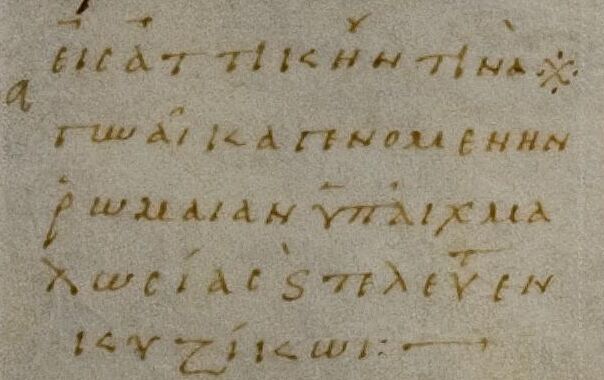 εἰς ἀττικὴν τινὰ ※
α
γυναῖκα γενομένην
ῥωμαίαν ὑπ' αἰχμα
λωσίας ϛ̀ τελευτ ἐν
κυζίκωι:—